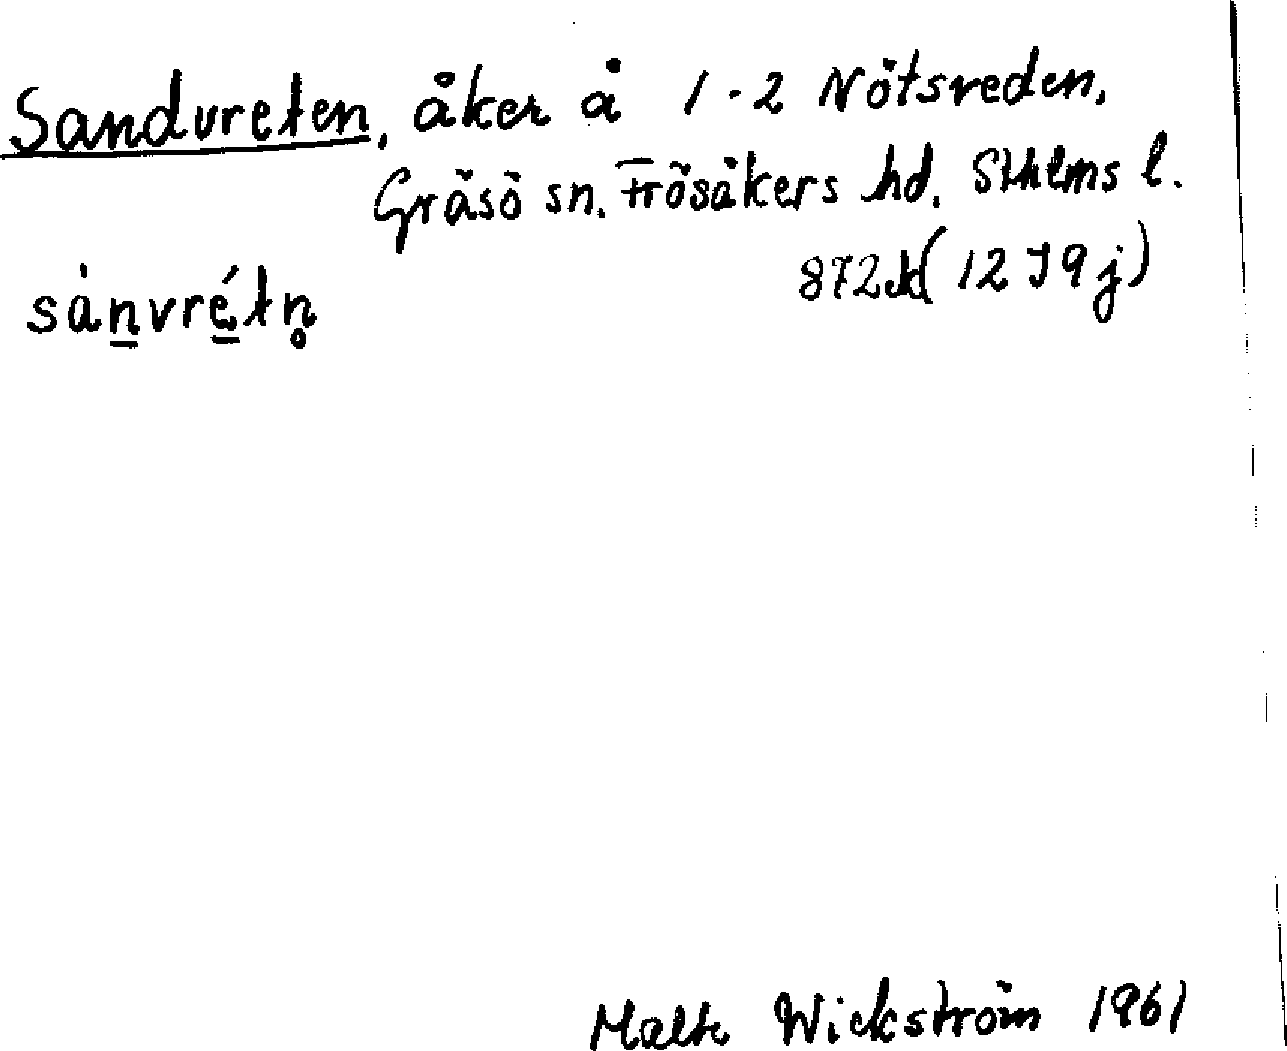 Sandvreten, åker å 1-2 Nötsreden,
Gräsö sn. Frösåkers hd. Sthlms l.
872d (12 I 9 j)
sànvrétn̥
Malte Wickström 1961